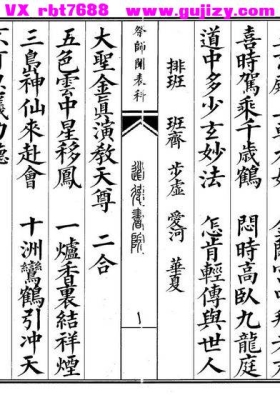 VX rbt7688 www.gujizy.com
喜時駕乘千歲鶴 悶時高臥九龍庭
道中多少玄妙法 怎肯輕傳與世人
排班 班齊 步虛 愛河 華夏
祭師開表科
德書院
一
大聖金眞演教天尊 二合
五色雲中星移鳳 一爐香裏結祥煙
三島神仙來赴會 十洲鸞鶴引冲天
不可思議功德
VX rbt7688 www.gujizy.com